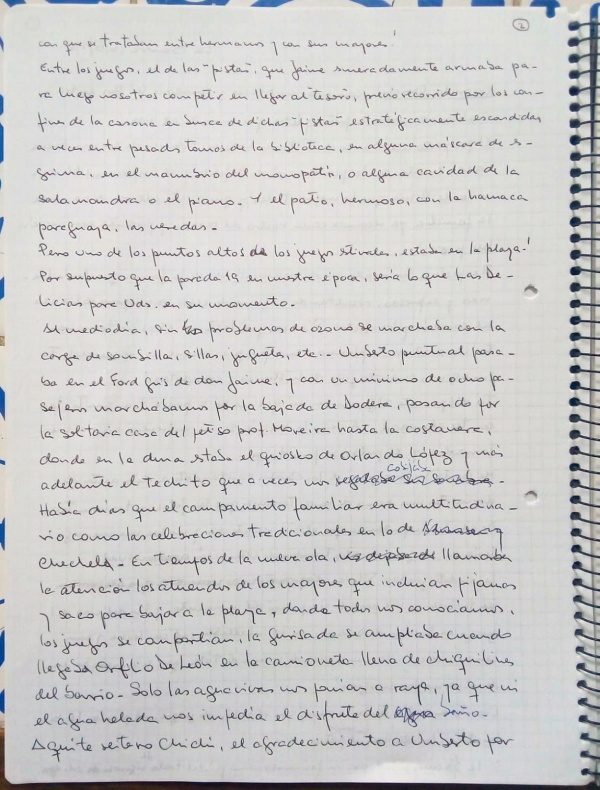 2
con que se trataban entre hermanos y con sus mayores!
Entre los juegos, el de las "pistas", que Jaime smeradamente armaba pa-
ra luego nosotros competir en llegar al tesoro, previo recorrido por los con-
fines de la casona en busca de dichas "pistas" estratégicamente escondidas
a veces entre pesados tomos de la biblioteca, en alguna máscara de es-
grima, en el manubrio del monopatín, o alguna cavidad de la
salamandra o el piano. Y el patio, hermoso, con la hamaca
paraguaya, las veredas.
Pero uno de los puntos altos de los juegos stivales, estaba en la playa!
Por supuesto que la parada 19 en nuestra época, sería lo que Las De-
licias para Uds. en su momento.
Al mediodía, sin problemas de ozono se marchaba con la
carga de sombrilla, sillas, juguetes, etc.. Umberto puntual para-
ba en el Ford gris de don Jaime, y con un mínimo de ocho pa-
sajeros marchábamos por la bajada de Dodera, pasando por
la solitaria casa del petiso prof. Moreira hasta la costanera,
donde en la duna estaba el quiosko de Orlando López y más
adelante el techito que a veces nos cobijaba.
Había días que el campamento familiar era multitudina-
rio como las celebraciones tradicionales en lo de
Chechela. En tiempos de la nueva ola, llamaba
la atención los atuendos de los mayores que incluían pijamas
y saco para bajar a la playa, donde todos nos conocíamos,
los juegos se compartían, la gurisada se ampliaba cuando
llegaba Orfilo De León en la camioneta llena de chiquilines
del barrio. Solo las aguavivas nos ponían a raya, ya que ni
el agua helada nos impedía el disfrute del baño.
Aquí te reitero Chichí, el agradecimiento a Umberto por